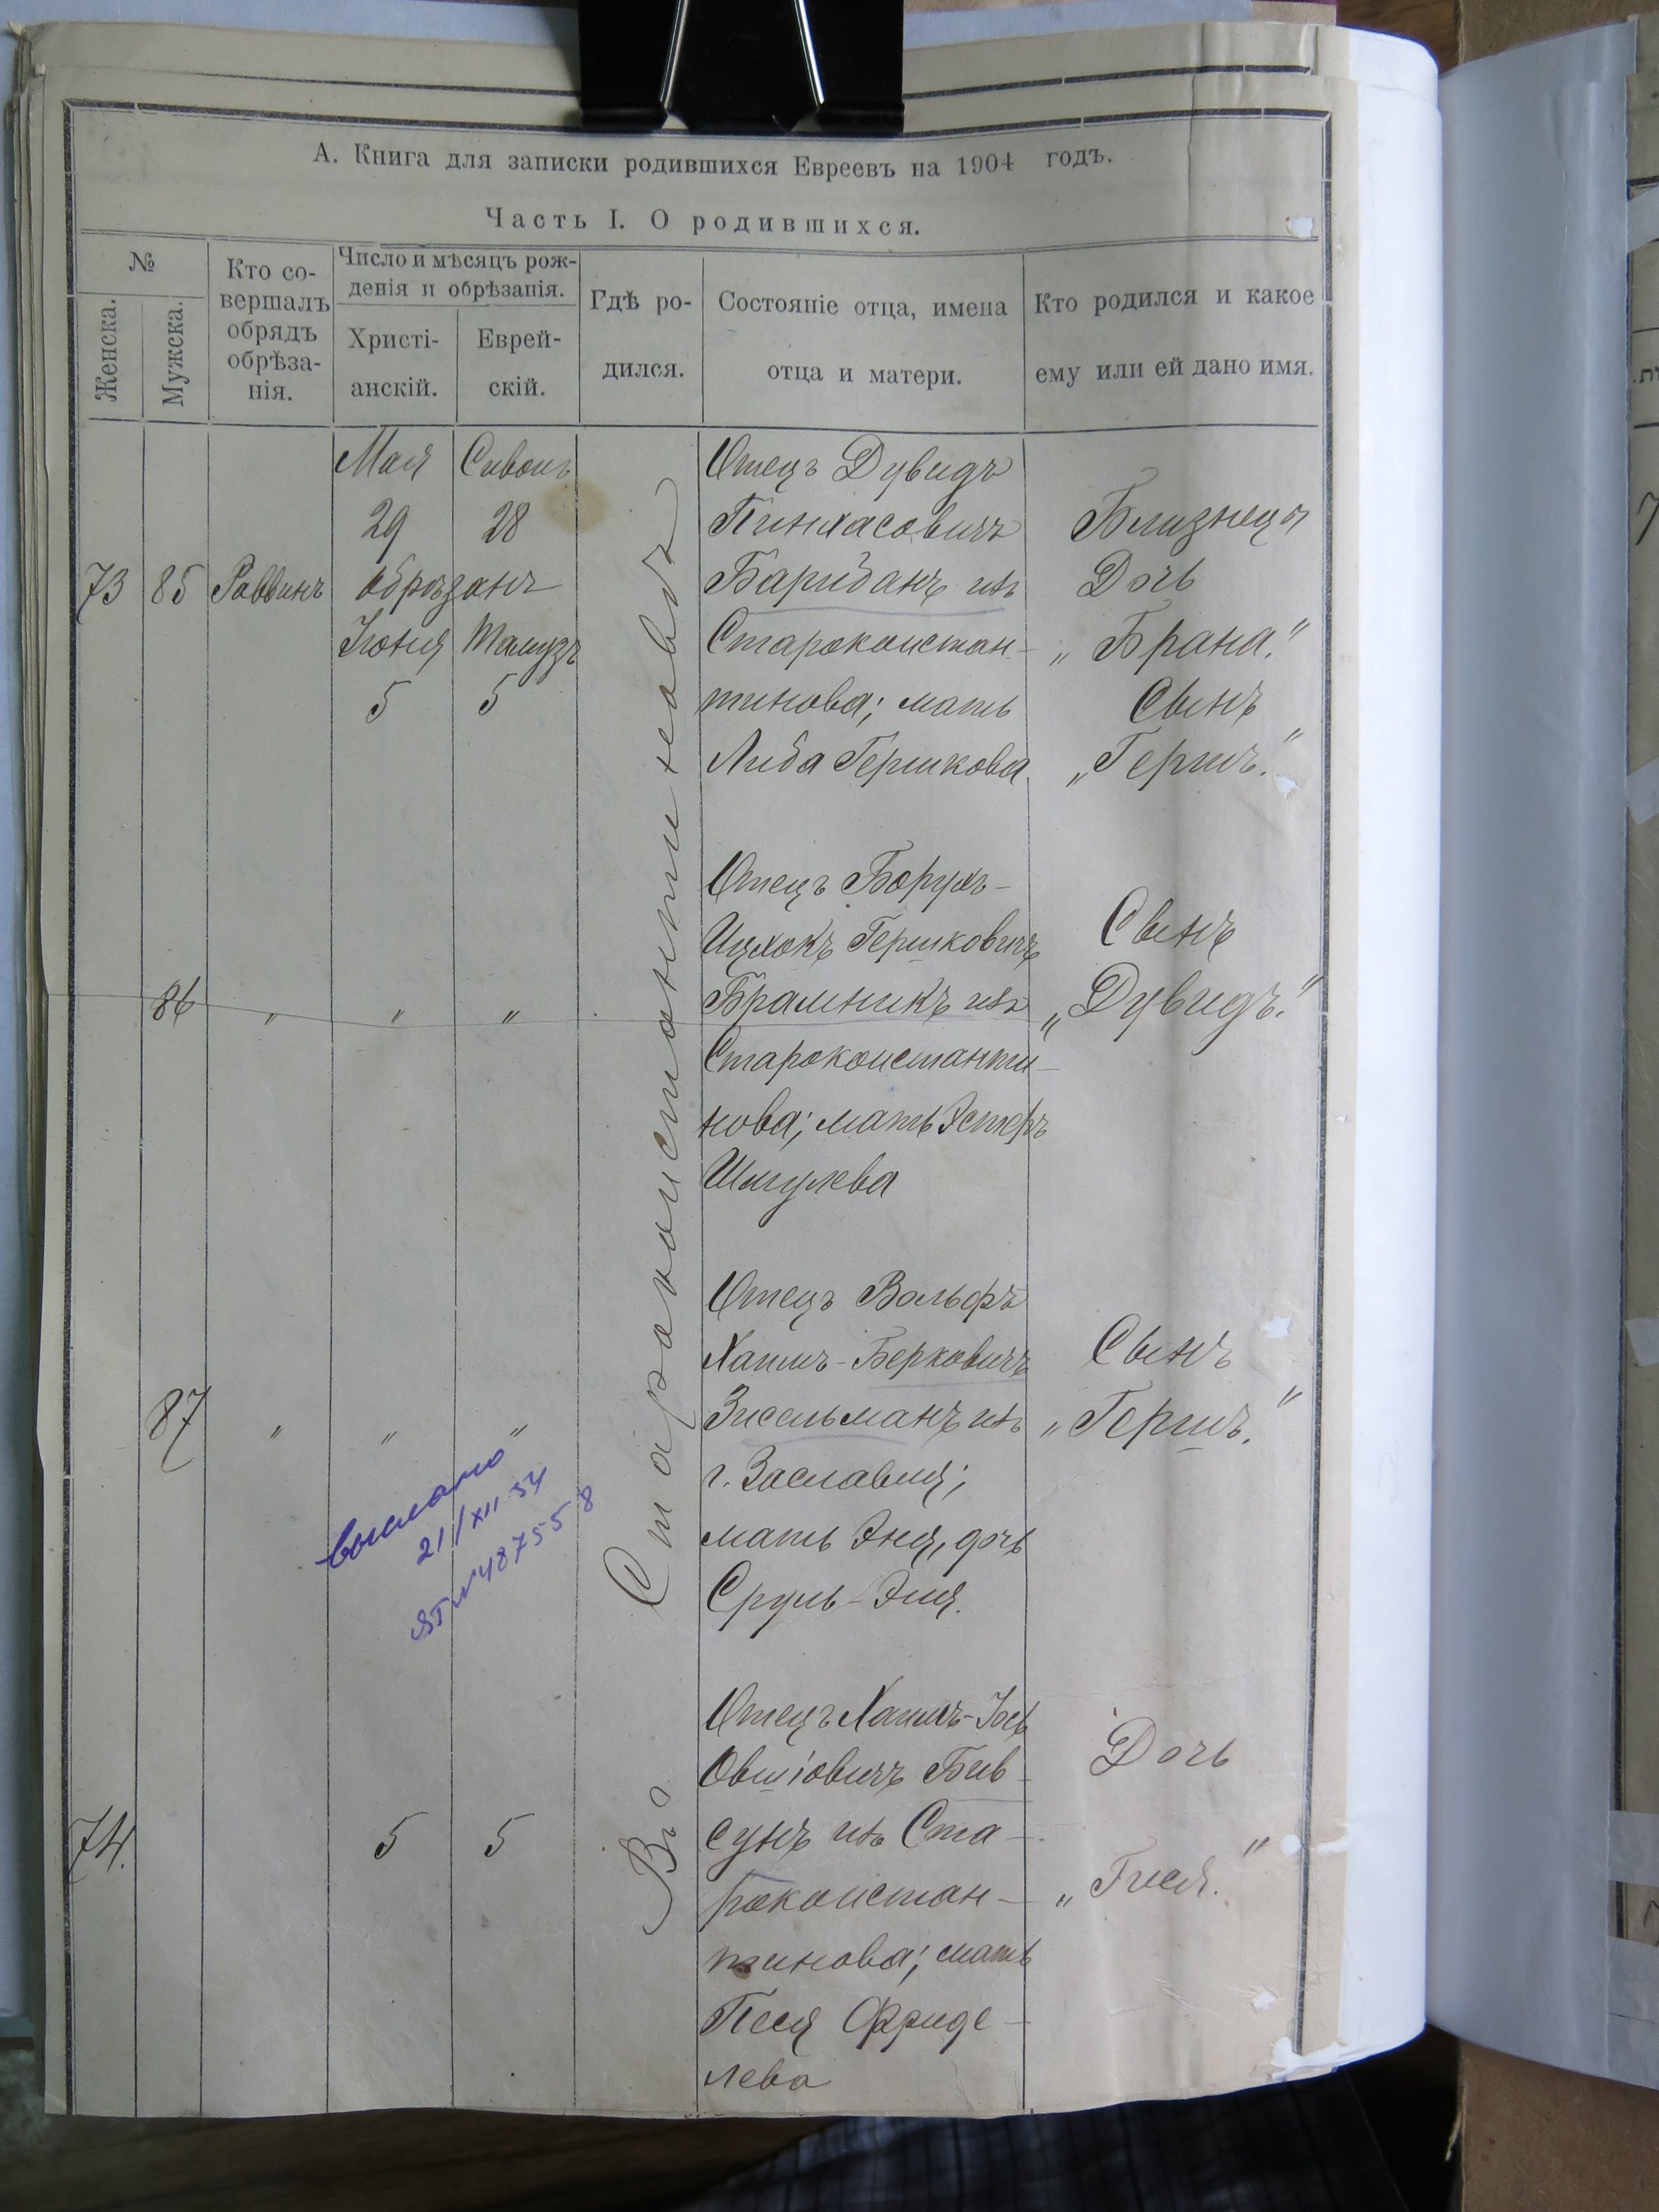 А. Книга для записки родившихся Евреевъ на 1904 годъ.
Часть I. О родившихся.
№
Женска.
Мужска.
Кто со-
вершалъ
обрядъ
обрѣза-
нія.
Число и мѣсяцъ рож-
денія и обрѣзанія.
Христі-
анскій.
Еврей-
скій.
Гдѣ ро-
дился.
Состояніе отца, имена
отца и матери.
Кто родился и какое
ему или ей дано имя.
73 85 Раввинъ
Мая Сивонъ
29 28
обрѣзанъ
Іюня Тамузъ
5 5
Въ Староконстантиновѣ
Отецъ Дувидъ
Пинхасовичъ
Барибанъ изъ
Староконстан-
тинова; мать
Либа Гершкова
Близнецы
Дочь
„Брана."
Сынъ
„Гершъ."
86 " " "
Отецъ Борухъ-
Ицхокъ Гершковичъ
Брамникъ изъ
Староконстанти-
нова; мать Эстеръ
Шмулева
Сынъ
„Дувидъ."
87 " " "
Отецъ Вольфъ
Хаимъ-Берковичъ
Зисельманъ изъ
г. Заславля;
мать Эня, дочь
Сруль-Эля.
Сынъ
„Гершъ."
выслано
21/XII-54
№487558
74. 5 5
Отецъ Хаимъ-Іось
Овшіовичъ Бив-
сунъ изъ Ста-
роконстан-
тинова; мать
Песя Фриде-
лева
Дочь
„Гися."